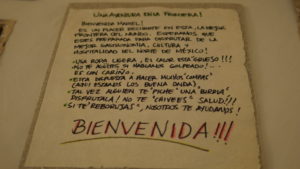 UNA AVENTURA EN LA FRONTERA!
BIENVENIDA MARIEL!
ES UN PLACER RECIBIRTE EN ESTA, LA MEJOR
FRONTERA DEL MUNDO. ESPERAMOS QUE
ESTES PREPARADA PARA DISFRUTAR DE LA
MEJOR GASTRONOMIA, CULTURA Y
HOSPITALIDAD DEL NORTE DE MÉXICO!
• USA ROPA LIGERA, EL CALOR ESTA GRUESO!!!
• NO TE ASUSTES SI HABLAMOS GOLPEADO!...
ES UN CARIÑO.
• ESTA DISPUESTA A HACER MUCHOS "COMPAS"
(AQUI ESTAMOS LOS BUENA ONDA).
• TAL VEZ ALGUIEN TE "PICHE" UNA "BIRRIA"
DISFRUTALA! NO TE "CHIVEES" SALUD!!!
• SI TE "REBORUJAS", NOSOTROS TE AYUDAMOS!
BIENVENIDA!!!